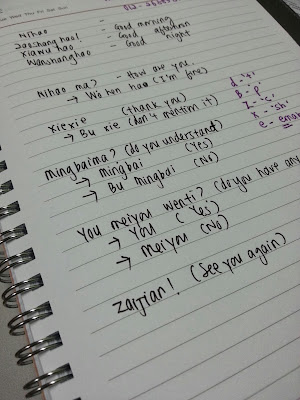 Wed Thu Fri Sat Sun
Nihao
Zaoshang hao! - Good morning
Xiawu hao - Good afternoon
Wanshanghao - Good night
Nihao ma? - How are you.
→ Wo hen hao (I'm fine)
xiexie (thank you)
→ Bu xie (don't mention it)
mingbaima? (do you understand)
→ mingbai (Yes)
→ Bu mingbai (No)
You meiyou wenti? (do you have any
→ You (Yes)
→ meiyou (No)
Zaijian! (See you again)
B - p
x - 'sh'